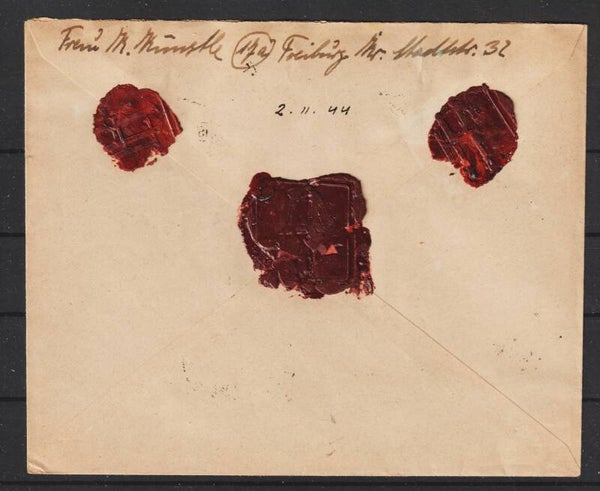 Frau M. Münstle (17a) Freiburg Br. Stadtstr. 32
2. 11. 44